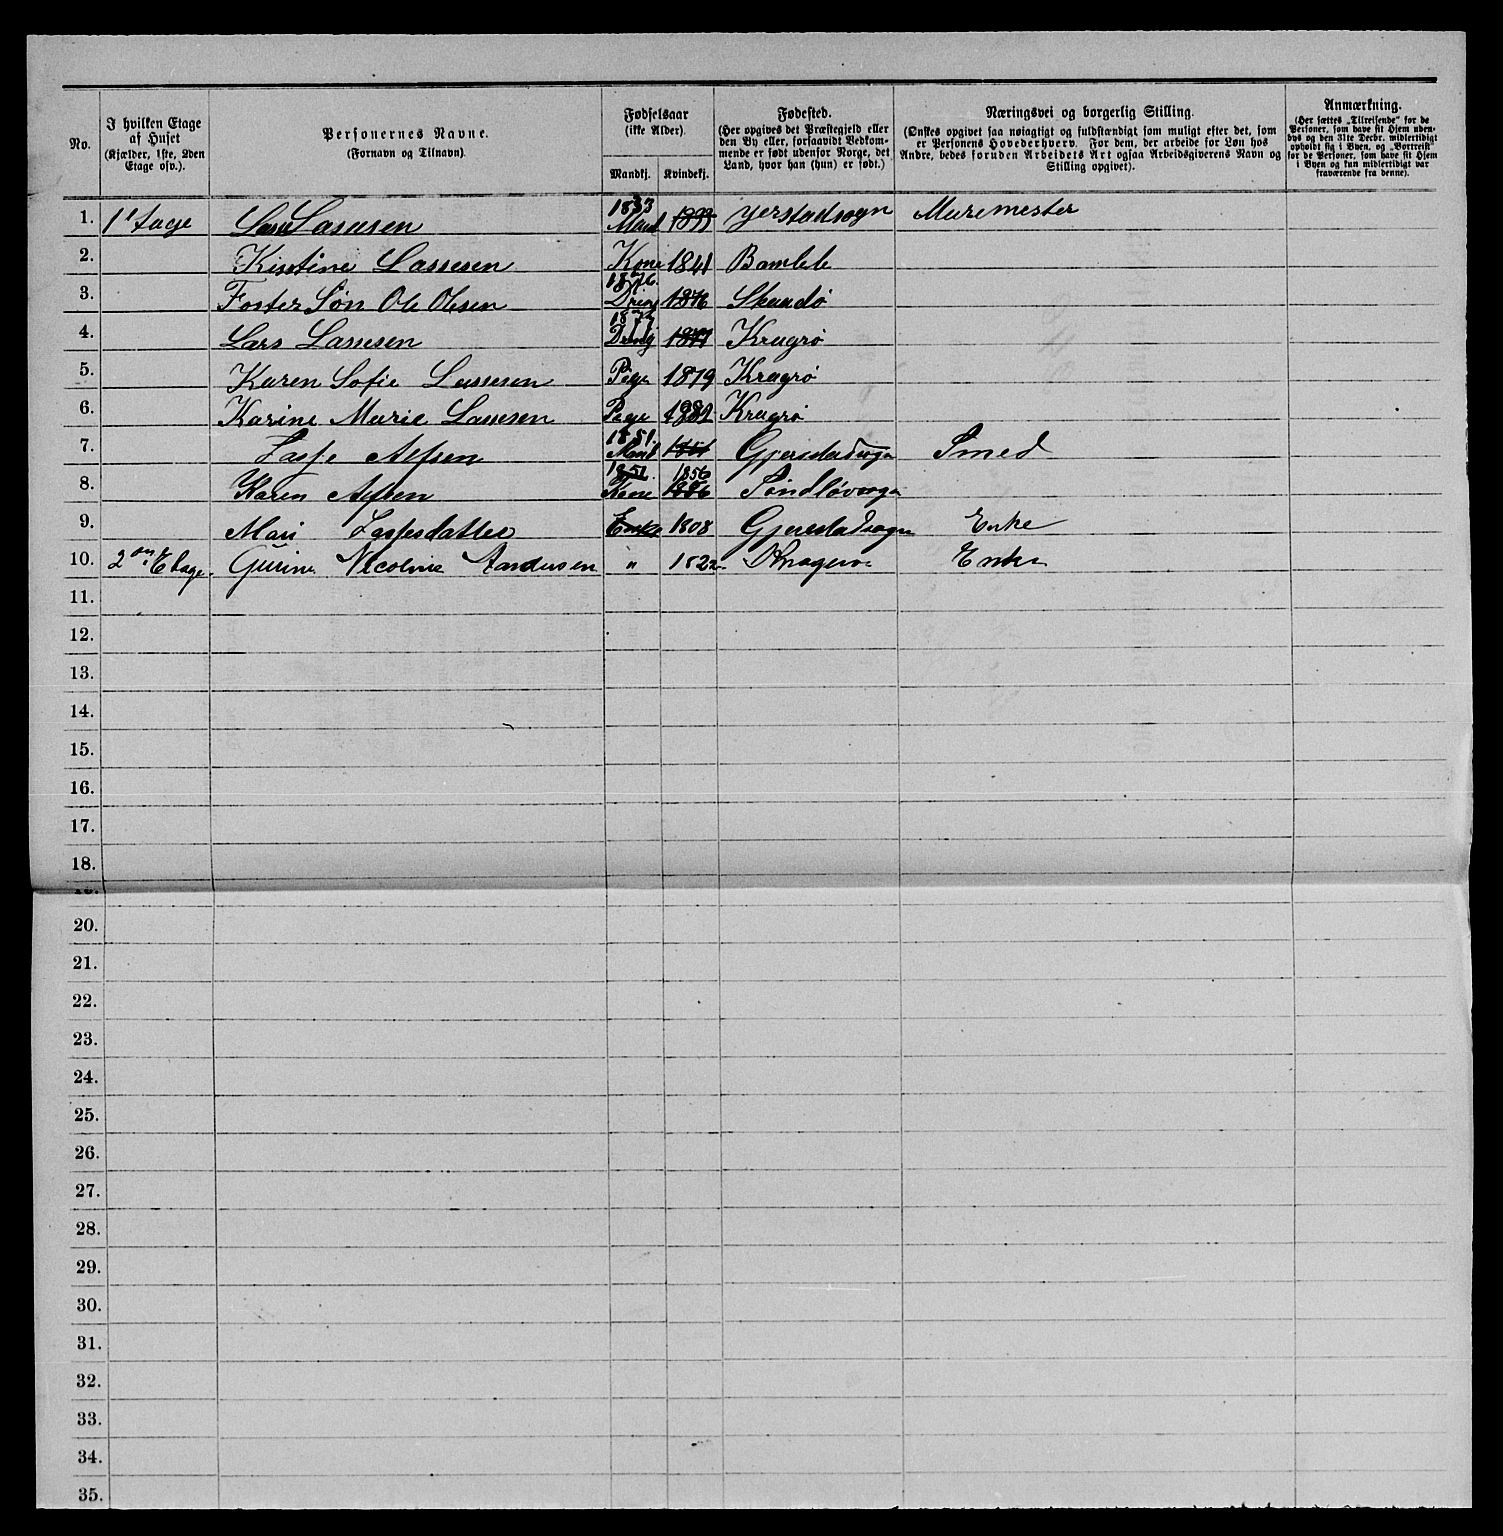 No.
I hvilken Etage af Huset (Kjælder, 1ste, 2den Etage osv.).
Personernes Navne.
(Fornavn og Tilnavn).
Fødselsaar
(ikke Alder).
Mandkj. Kvindekj.
Fødested.
(Her opgives det Præstegjeld eller den By eller, forsaavidt Vedkommende er født udenfor Norge, det Land, hvor han (hun) er født.)
Næringsvei og borgerlig Stilling.
(Ønskes opgivet saa nøiagtigt og fuldstændigt som muligt efter det, som er Personens Hovederhverv. For dem, der arbeide for Løn hos Andre, bedes foruden Arbeidets Art ogsaa Arbeidsgiverens Navn og Stilling opgivet).
Anmærkning.
(Her sættes „Tilreisende" for de Personer, som have sit Hjem udenbys og den 31te Decbr. midlertidigt opholdt sig i Byen, og „Bortreist" for de Personer, som have sit Hjem i Byen og kun midlertidigt var fraværende fra denne).
1. Lassesen 1833 Mand 1833 Jerstadsogn Muremester
2. Kistine Lassesen Kone 1841 Bamble
3. Foster Søn Ole Olesen 1876. Dreng 1876 Skaadö
4. Lars Lassesen 1877 Dreng 1877 Kragrö
5. Karen Sofie Lassesen Pige 1879 Kragrö
6. Karine Marie Lassesen Pige 1882 Kragrö
7. Lasse Alfsen 1851. Mand 1851 Smed
8. Karen Alfsen 1851. Kone 1856 1856
9. Mari Enke 1808 Enke
10. 2den Etage. Gurine Nicoline Andersen " 1822 Kragerø Enke
11.
12.
13.
14.
15.
16.
17.
18.
19.
20.
21.
22.
23.
24.
25.
26.
27.
28.
29.
30.
31.
32.
33.
34.
35.